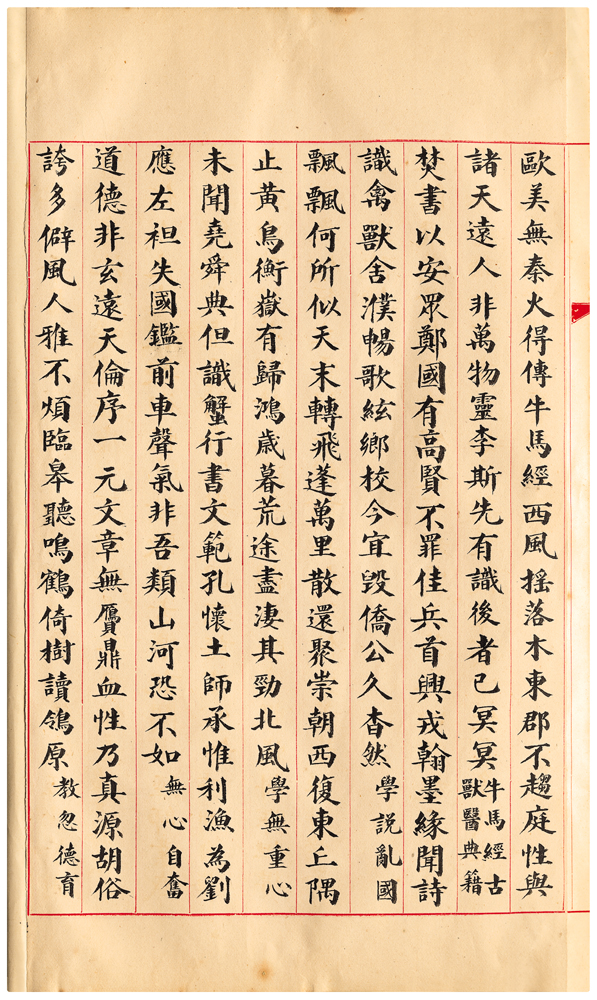 歐美無秦火得傳牛馬經西風搖落木東郡不趨庭性與
諸天遠人非萬物靈李斯先有識後者已冥冥牛馬經古獸醫典籍
焚書以安眾鄭國有高賢不罪佳兵首興戎翰墨緣聞詩
識禽獸舍濮暢歌絃鄉校今宜毀僑公久杳然學說亂國
飄飄何所似天末轉飛蓬萬里散還聚崇朝西復東丘隅
止黃鳥衡嶽有歸鴻歲暮荒途盡淒其勁北風學無重心
未聞堯舜典但識蟹行書文範孔懷土師承惟利漁為劉
應左袒失國鑑前車聲氣非吾類山河恐不如無心自奮
道德非玄遠天倫序一元文章無贗鼎血性乃真源胡俗
誇多僻風人雅不煩臨皋聽鳴鶴倚樹讀鴒原教忽德育